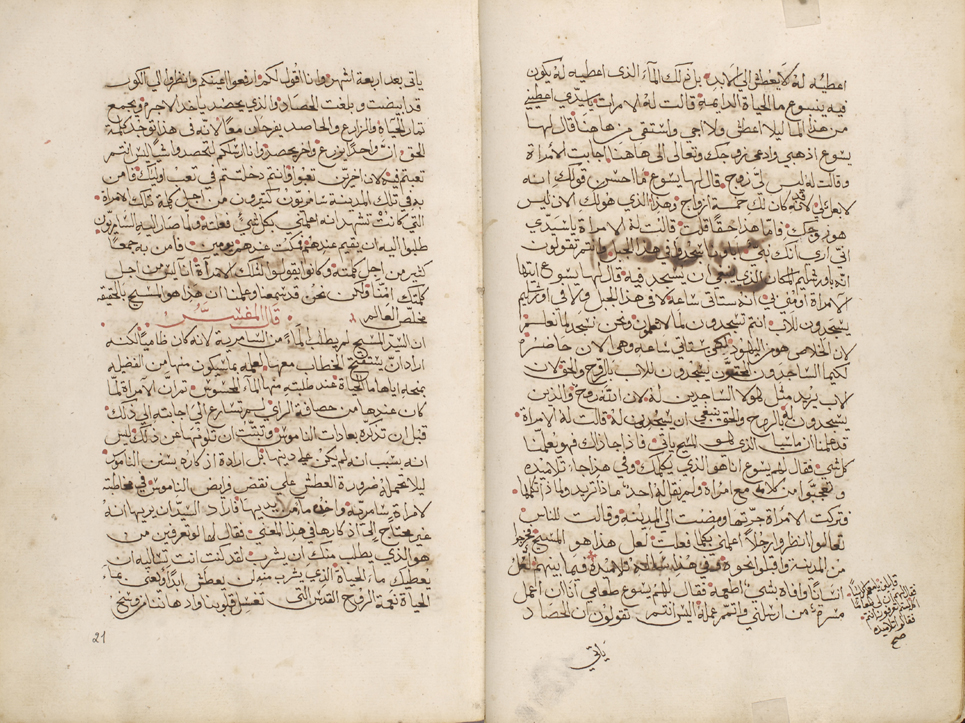 اعطيه له لا يعطش الى الابد بل ذلك الماء الذى اعطيه له يكون
فيه ينبوع ما الحياة الدايمة قالت له الامراة يا سيدى اعطينى
من هذا الما ليلا اعطش ولا اجى واستقى من هاهنا قال لها
يسوع اذهبي وادعى زوجك وتعالى الى هاهنا اجابت الامراة
وقالت له ليس لى زوج قال لها يسوع ما احسن قولك انه
لا بعل لى لانه كان لك خمسة ازواج وهذا الذي هو لك الان ليس
هو زوجك فاما هذا حقا قلت قالت له الامراة يا سيدى
انى ارى انك نبى سجدوا فى هذا الجبل وانتم تقولون
انه باورشليم المكان الذى ينبغى ان يسجد فيه قال لها يسوع ايتها
الامراة اومنى بي انه ستاتى ساعة لا فى هذا الجبل ولا فى اورشليم
يسجدون للاب انتم تسجدون لما لا تعلمون ونحن نسجد لما نعلم
لان الخلاص هو من اليهود لكن ستاتى ساعة وهى الان حاضرة
لكيما الساجدون المحقون يسجدون للاب بالروح والحق لان
الاب يريد مثل هولا الساجدين له لان الله روح والذين
يسجدون له بالروح والحق ينبغي ان يسجدوا له قالت له الامراة
قد علمنا ان ماسيا الذى هو المسيح ياتى فاذا جا ذاك فهو يعلمنا
كل شى فقال لها يسوع انا هو الذى يكلمك وفى هذا جاء تلاميذه
وتعجبوا من كلامه مع امراة ولم يقل له احد ما ذا تريد ولماذا تكلمها
فتركت الامراة جرتها ومضت الى المدينة وقالت للناس
تعالوا انظروا رجلا اعلمني بكلما فعلت لعل هذا هو المسيح فخرجوا
من المدينة واقبلوا نحوه وفى هذا تلاميذه فيما بينهم لعل
انسانا وافاه بشى اطعمه فقال لهم يسوع طعامي انا ان اعمل
مسرة من ارسلني واتم عمله اليس انتم تقولون ان الحصاد
ياتي
ياتى بعد اربعة اشهر وانا اقول لكم ارفعوا اعينكم وانظروا الى الكور
قد ابيضت وبلغت الحصاد والذي يحصد ياخذ الاجر ويجمع
ثمار الحياة والزارع والحاصد يفرحان معا لانه فى هذا توجد كلمة
الحق ان واحدا يزرع واخر يحصد وانا ارسلكم لتحصدوا شيا ليس انتم
تعبتم فيه لان اخرين تعبوا وانتم دخلتم فى تعب اوليك فامن
به فى تلك المدينة سامريون كثيرون من اجل كلمة تلك الامراة
التي كانت تشهد انه اعلمني بكل شى فعلته ولما صار اليه السامريون
طلبوا اليه ان يقيم عندهم فمكث عندهم يومين فامن به جمعا
كثير من اجل كلمته وكانوا يقولوا لتلك الامراة اننا ليس من اجل
كلمتك امنا ولكن نحن قد سمعنا وعلمنا ان هذا هو المسيح بالحقيقة
مخلص العالم قال المفسر
ان السيد المسيح لم يطلب الماء من السامرية لانه كان ظاميا لكنه
اراد ان يستفتح الخطاب معها لعلمه بما سيكون منها من الفضيلة
بمنحه اياها ما الحياة عند طلبته منها الماء المحسوس ثم ان الامراة لما
كان عندها من حصافة الراى لم تسارع الى اجابته الى ذلك
قبل ان تذكره بعادات الناموس وتثبت ان تلوثها عن ذلك ليس
انه بسبب انه لم يكن على دينها بل ارادة اذكاره بسنن الناموس
ليلا تحمله ضرورة العطش على نقض فرايض الناموس في مخاطبة
لامراة سامرية واخذ ما من يديها فاراد السيد ان يريها انه
غير محتاج الى اذكارها في هذا المعنى فقال لها لو تعرفين من
هو الذي يطلب منك ان يشرب لقد كنت انت تساليه ان
يعطيك ماء الحياة الذي يشرب منه لن يعطش ابدا ويعنى بماء
الحياة نعمة الروح القدس التى تغسل قلوبنا واذهاننا من وسخ
21